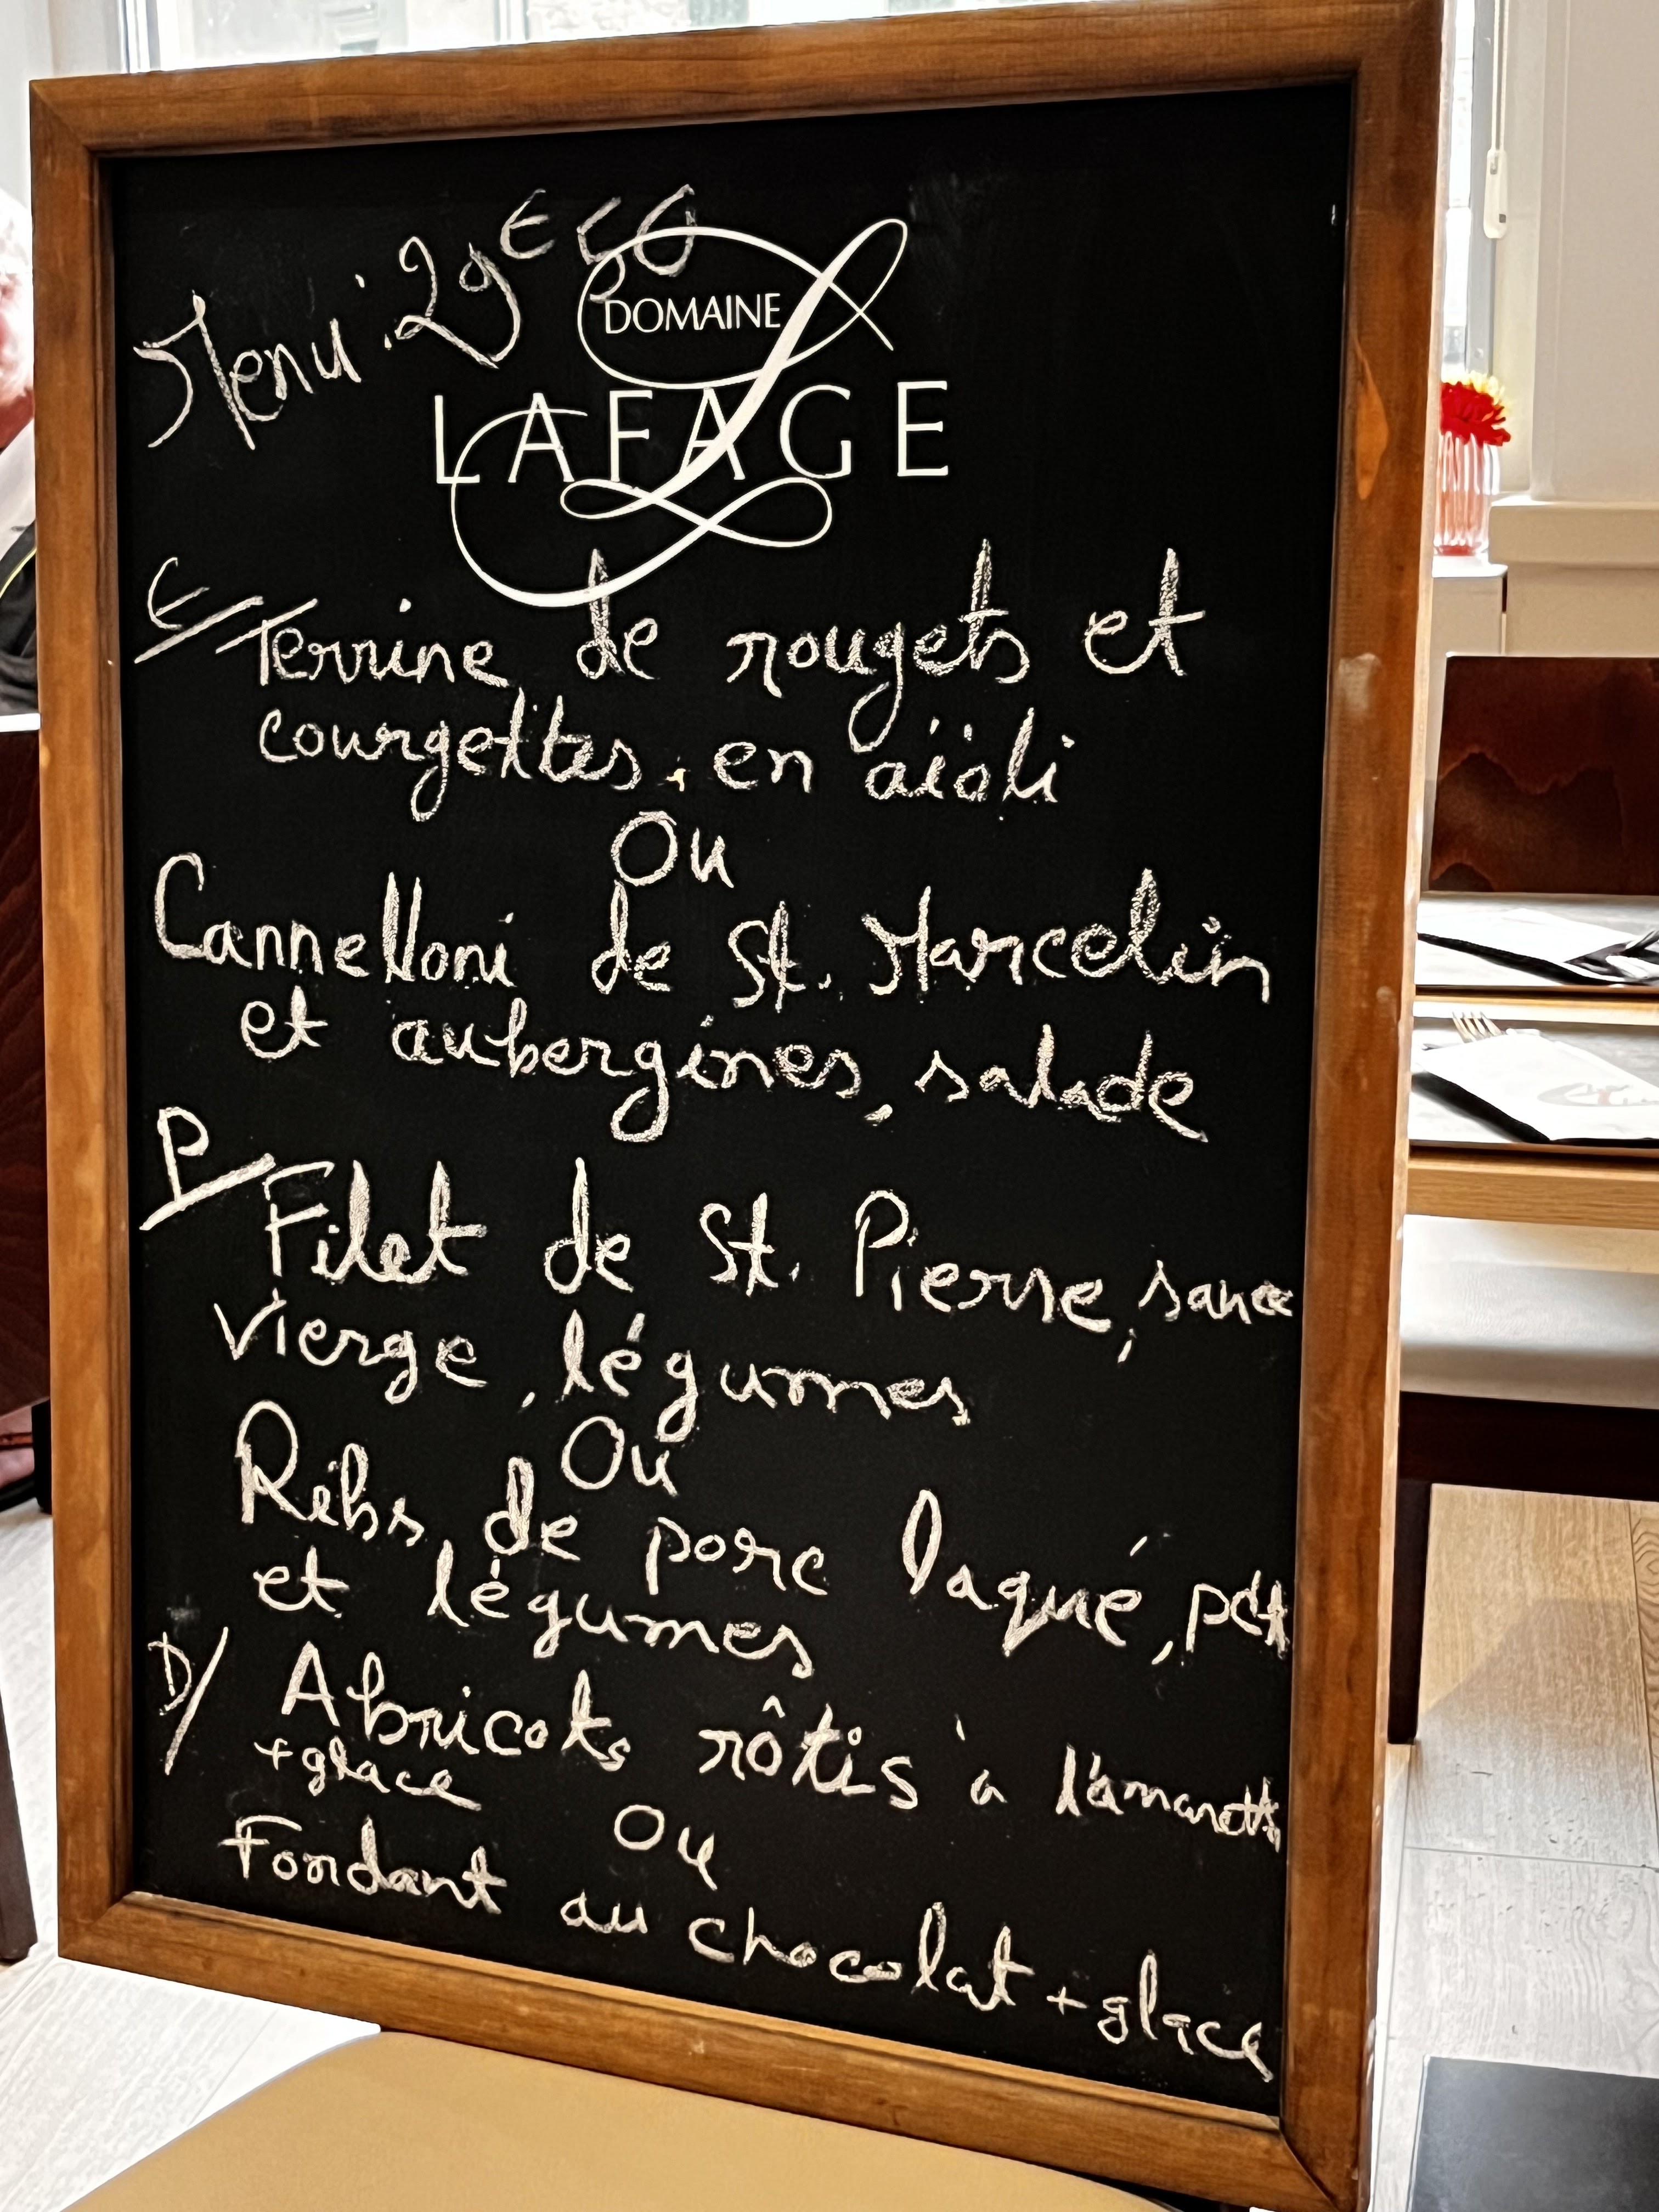 Menu: 29€00
DOMAINE
LAFAGE
E/ Terrine de rougets et
courgettes, en aïoli
Ou
Cannelloni de St. Marcelin
et aubergines, salade
P/ Filet de St. Pierre, sauce
vierge, légumes
Ou
Ribs de porc laqué, pdt
et légumes
D/ Abricots rôtis à l'amaretto
+glace
Ou
Fondant au chocolat + glace